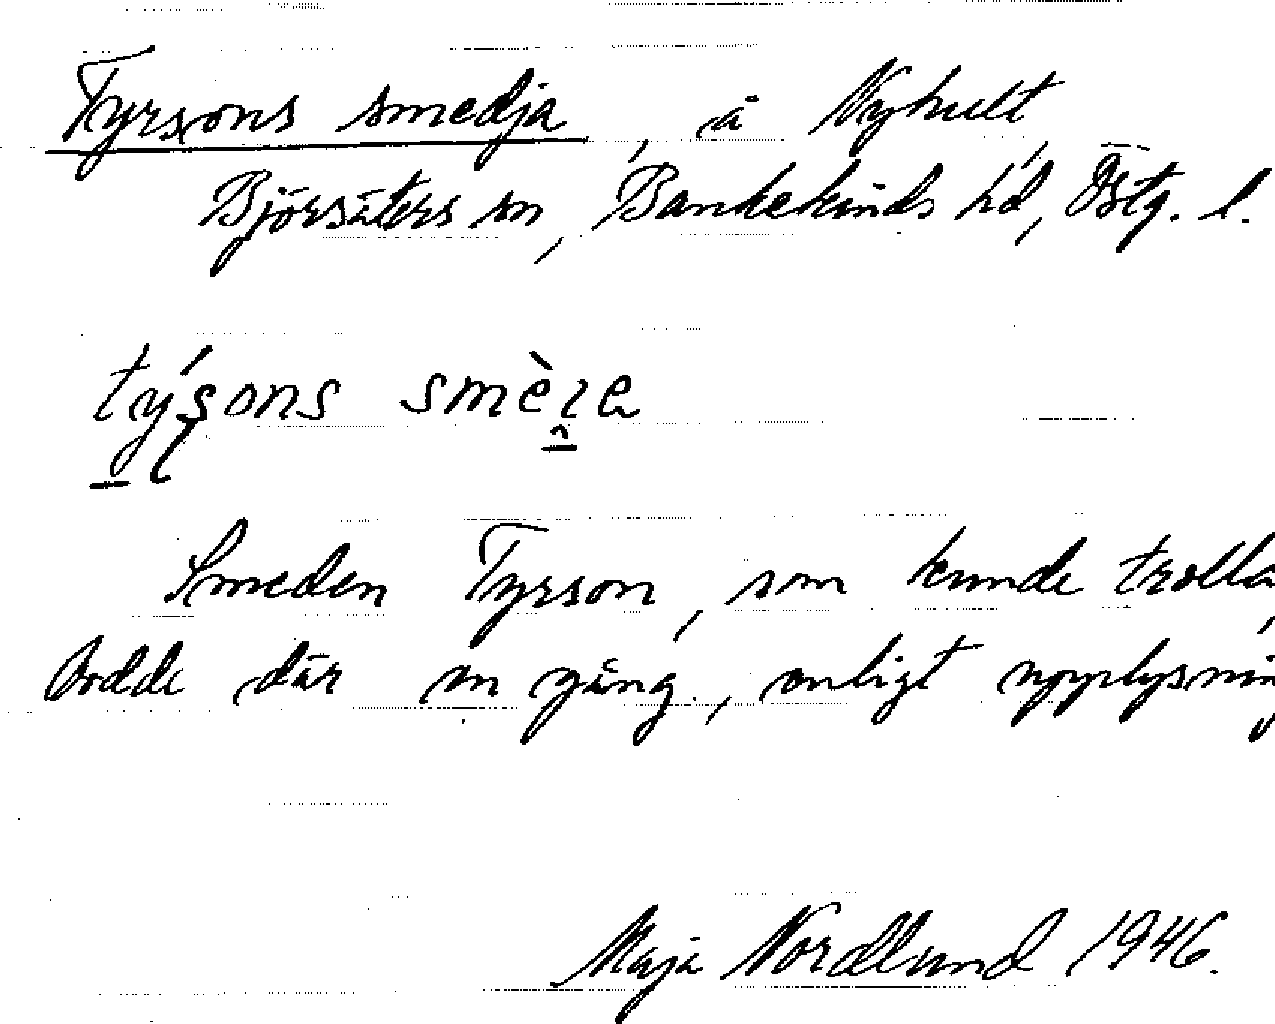 Tyrsons smedja, å Nyhult
Björsäters sn, Bankekinds hd, Östg. l.
týsons smèɀe
Smeden Tyrson, som kunde trolla,
bodde där en gång, enligt upplysning
Maja Nordlund 1946.